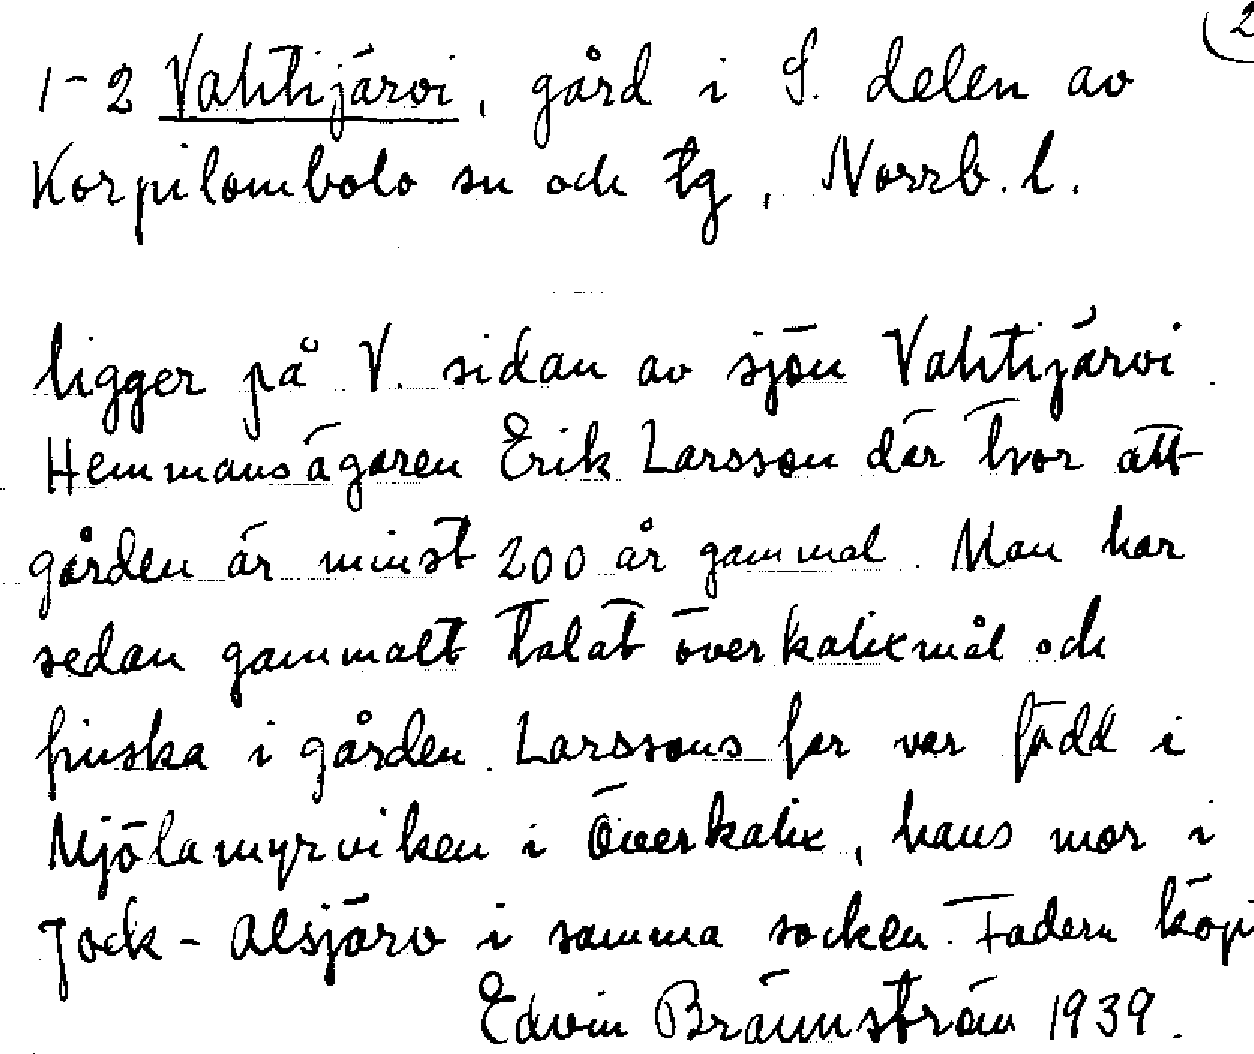 2
1-2 Vahtijärvi, gård i S. delen av
Korpilombolo sn och tg, Norrb. l.
ligger på V. sidan av sjön Vahtijärvi.
Hemmansägaren Erik Larsson där tror att
gården är minst 200 år gammal. Man har
sedan gammalt talat överkalixmål och
finska i gården. Larssons far var född i
Mjölamyrviken i Överkalix, hans mor i
Jock-Alsjärv i samma socken. Fadern köp
Edvin Brännström 1939.